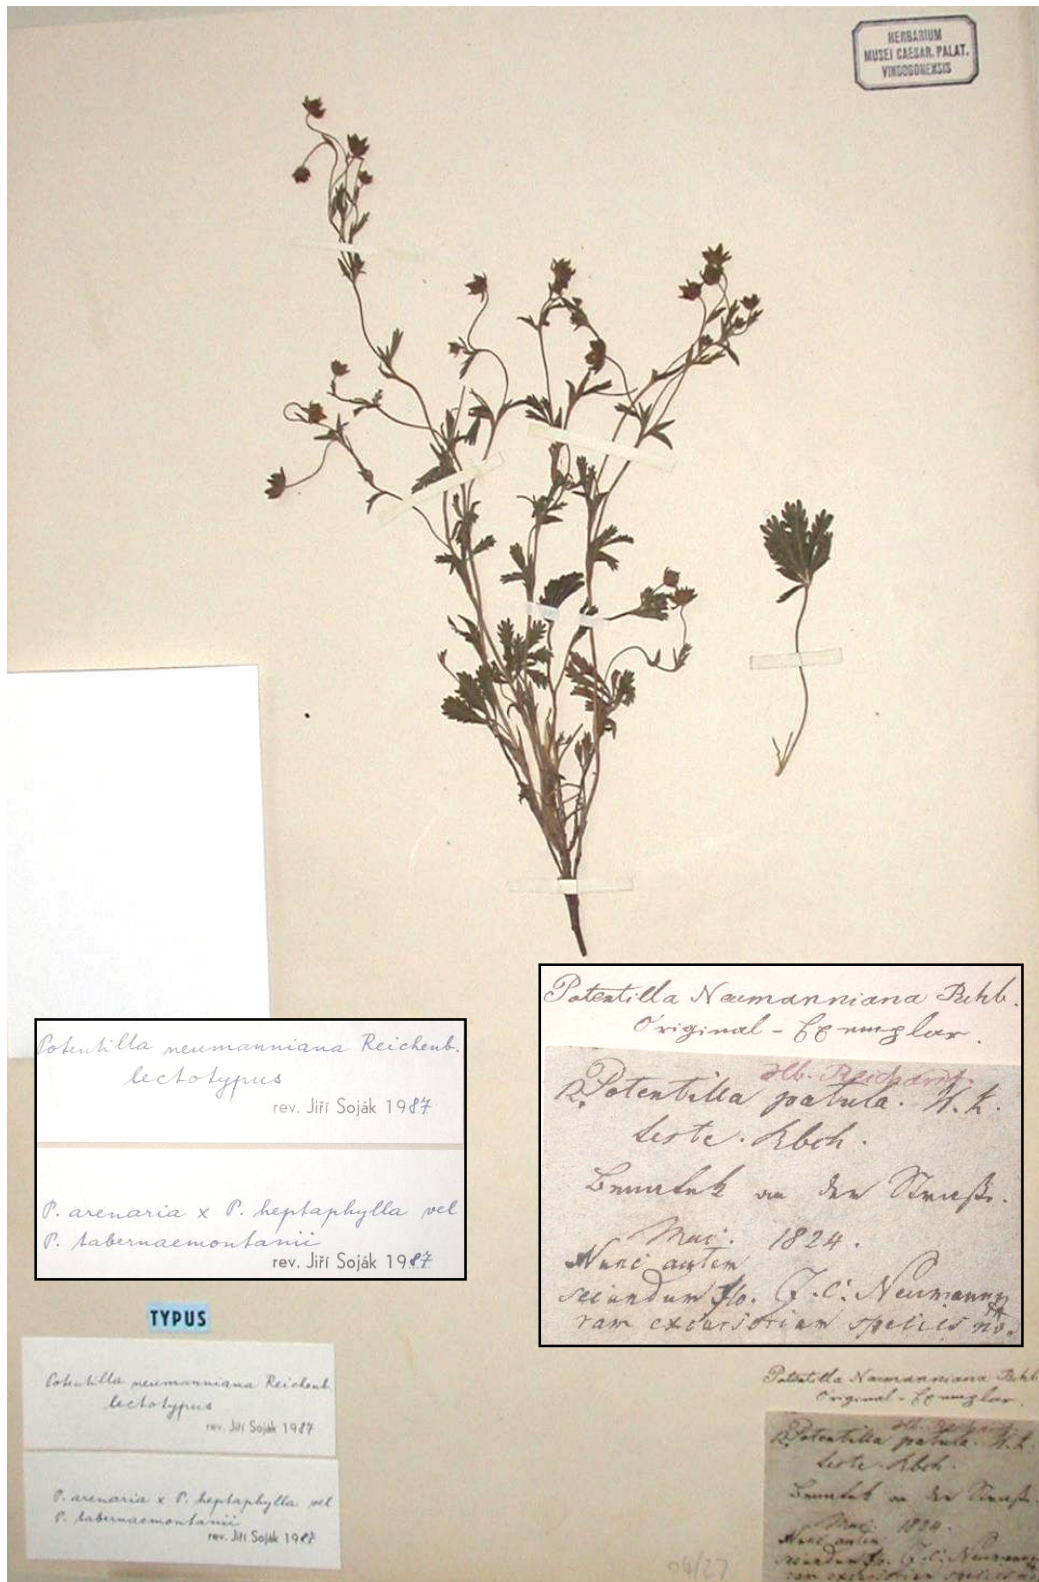 HERBARIUM
MUSEI CAESAR. PALAT.
VINDOBONENSIS
Potentilla neumanniana Reichenb.
lectotypus
rev. Jiří Soják 1987
P. arenaria x P. heptaphylla vel
P. tabernaemontanii
rev. Jiří Soják 1987
Potentilla Neumanniana Rchb.
Original-Exemplar.
Hb. Reichardt.
Potentilla patula. W. K.
teste. Rbch.
an der Straße.
Mai. 1824.
Nunc autem
secundum flo. F. C. Neumann
ram excursoriam species no.
TYPUS
Potentilla neumanniana Reichenb.
lectotypus
rev. Jiří Soják 1987
P. arenaria x P. heptaphylla vel
P. tabernaemontanii
rev. Jiří Soják 1987
Potentilla Neumanniana Rchb
Original-Exemplar.
Potentilla patula. W. K.
teste. Rbch.
an der Straß
Mai. 1824.
Nunc autem
secundum flo. F. C. Neumann
ram excursoriam species no
04/27